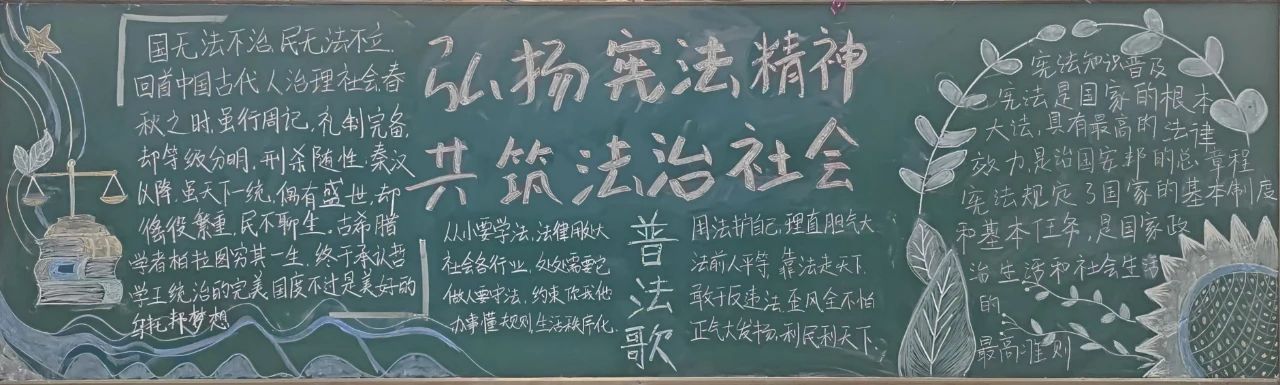 国无法不治,民无法不立.
回首中国古代人治理社会春
秋之时,虽行周记,礼制完备,
却等级分明,刑杀随性.秦汉
以降,虽天下一统,偶有盛世,却
徭役繁重,民不聊生.古希腊
学者柏拉图穷其一生,终于承认哲
学王统治的完美国度不过是美好的
乌托邦梦想
弘扬宪法精神
共筑法治社会
从小要学法,法律用处大
社会各行业,处处需要它
做人要守法,约束你我他
办事懂规则,生活秩序化.
普法歌
用法护自己,理直胆气大
法前人平等,靠法走天下.
敢于反违法,歪风全不怕
正气大发扬,利民利天下.
宪法知识普及
宪法是国家的根本
大法,具有最高的法律
效力,是治国安邦的总章程
宪法规定了国家的基本制度
和基本任务,是国家政
治生活和社会生活
的
最高准则